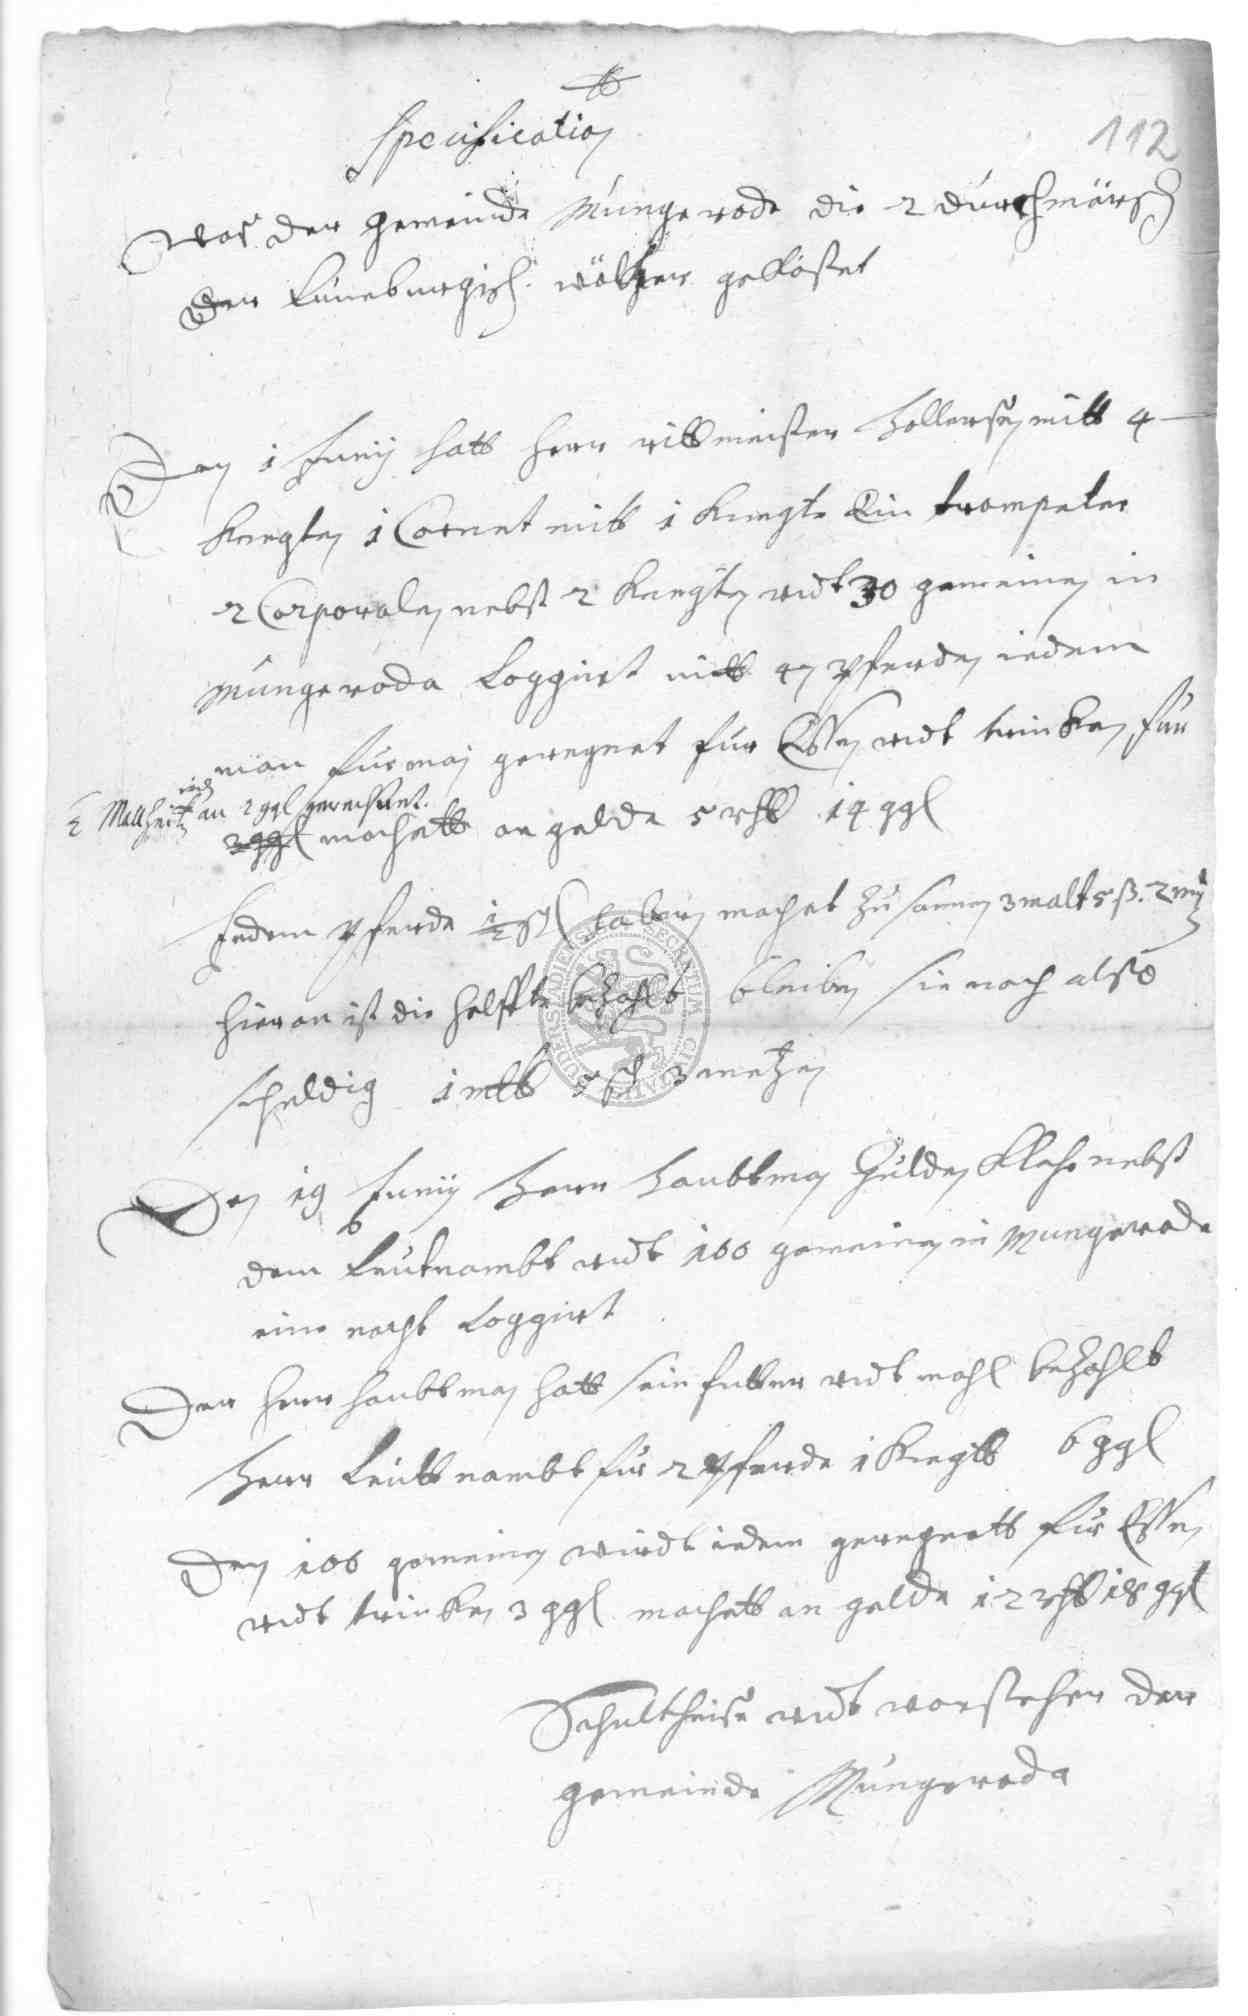 Specification
112
Was der gemeinde Mungerode die 2 durchmärsch
der Lüneburgisch. völker gekostet
Den 1 Junij hatt herr rittmeister Hollersen mitt 4
Knegten 1 Cornet mitt 1 Knegte Ein trompeter
2 Corporalen nebst 2 Knegten undt 30 gemeinen in
Mungeroda Loggirt mitt 47 pferden iedem
man geregnet fur Essen undt trincken fur
Mallzeit an 2 ggl gerechnet.
3 ggl machett an gelde 5 rthl 14 ggl
Jedem pferde 1/2 haberen machet zusamen 3 malt 5 ß. 2
hieran ist die helffte bezahlt bleiben sie noch alßo
schuldig 1 mltt 5 3 metzen
Den 19 Junij herr haubtman Gulden Klahe nebst
dem Leutnambt undt 106 gemeinen in Mungerode
eine nacht Loggirt
Der herr haubtman hatt sein futter undt mahl bezahlt
herr Leuttnambt für 2 pferde 1 Knegtt 6 ggl
Den 106 gemeinen wirdt iedem geregnett für Essen
undt trincken 3 ggl machett an gelde 12 rthl 18 ggl
Schultheise undt vorsteher der
gemeinde Mungeroda